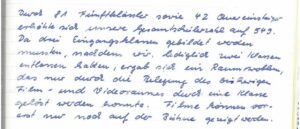 Durch 81 Fünftklässler sowie 42 Quereinsteiger
erhöhte sich unsere Gesamtschülerzahl auf 549.
Da drei Eingangsklassen gebildet werden
mussten, nachdem wir lediglich zwei Klassen
entlassen hatten, ergab sich ein Raumproblem,
das nur durch die Belegung des bisherigen
Film- und Videoraumes durch eine Klasse
gelöst werden konnte. Filme können vor-
erst nur noch auf der Bühne gezeigt werden.